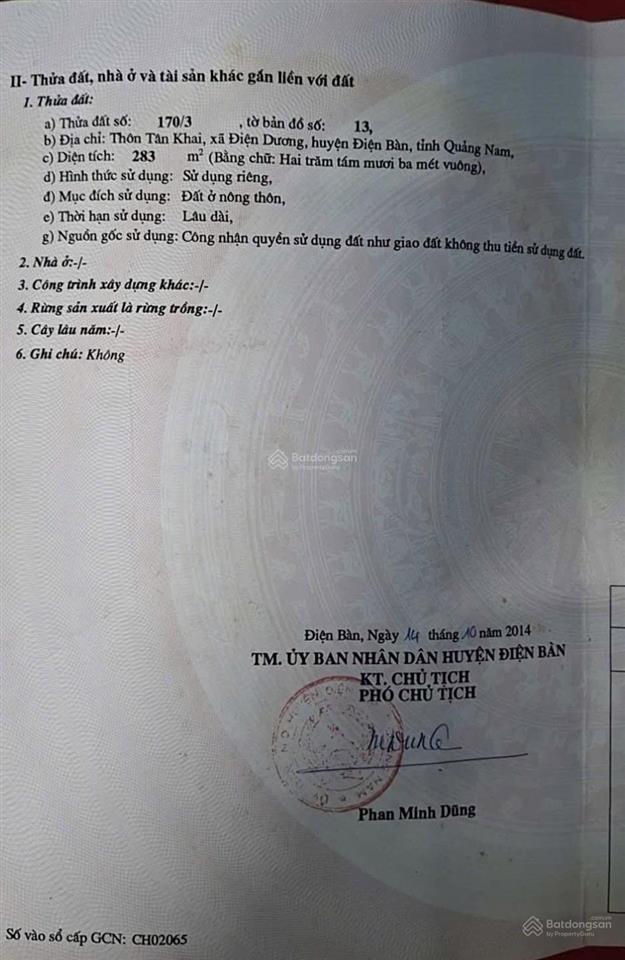 II- Thửa đất, nhà ở và tài sản khác gắn liền với đất
1. Thửa đất:
a) Thửa đất số: 170/3 , tờ bản đồ số: 13,
b) Địa chỉ: Thôn Tân Khai, xã Điện Dương, huyện Điện Bàn, tỉnh Quảng Nam,
c) Diện tích: 283 m² (Bằng chữ: Hai trăm tám mươi ba mét vuông),
d) Hình thức sử dụng: Sử dụng riêng,
đ) Mục đích sử dụng: Đất ở nông thôn,
e) Thời hạn sử dụng: Lâu dài,
g) Nguồn gốc sử dụng: Công nhận quyền sử dụng đất như giao đất không thu tiền sử dụng đất.
2. Nhà ở:-/-
3. Công trình xây dựng khác:-/-
4. Rừng sản xuất là rừng trồng:-/-
5. Cây lâu năm:-/-
6. Ghi chú: Không
Batdongsan
by PropertyGuru
Điện Bàn, Ngày 14 tháng 10 năm 2014
TM. ỦY BAN NHÂN DÂN HUYỆN ĐIỆN BÀN
KT. CHỦ TỊCH
PHÓ CHỦ TỊCH
Phan Minh Dũng
Số vào sổ cấp GCN: CH02065
Batdongsan.com.vn
by PropertyGuru